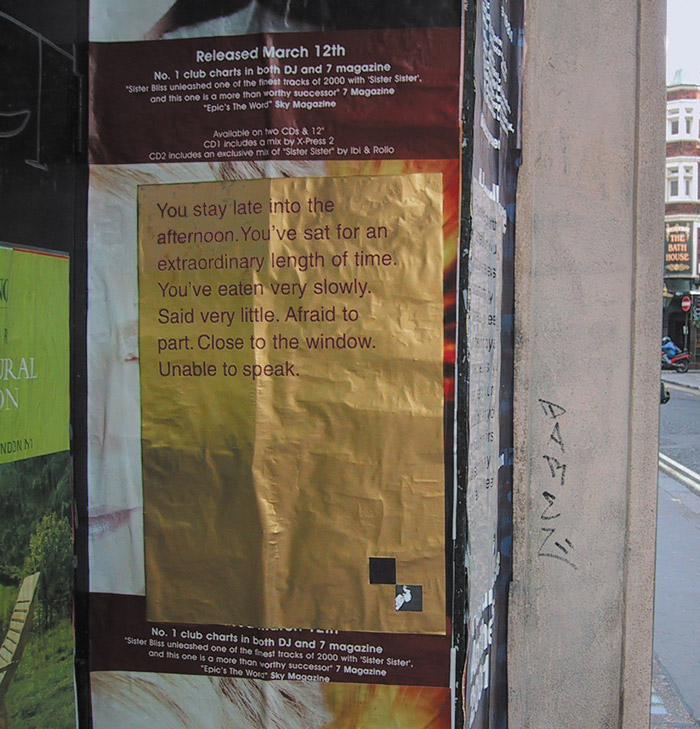 Released March 12th
No. 1 club charts in both DJ and 7 magazine
"Sister Bliss unleashed one of the finest tracks of 2000 with 'Sister Sister',
and this one is a more than worthy successor" 7 Magazine
"Epic's The Word" Sky Magazine
Available on two CDs & 12"
CD1 includes a mix by X-Press 2
CD2 includes an exclusive mix of "Sister Sister" by Ibi & Rollo
You stay late into the
afternoon. You've sat for an
extraordinary length of time.
You've eaten very slowly.
Said very little. Afraid to
part. Close to the window.
Unable to speak.
No. 1 club charts in both DJ and 7 magazine
"Sister Bliss unleashed one of the finest tracks of 2000 with 'Sister Sister',
and this one is a more than worthy successor" 7 Magazine
"Epic's The Word" Sky Magazine
URAL
ON
NDON N1
THE
BATH
HOUSE